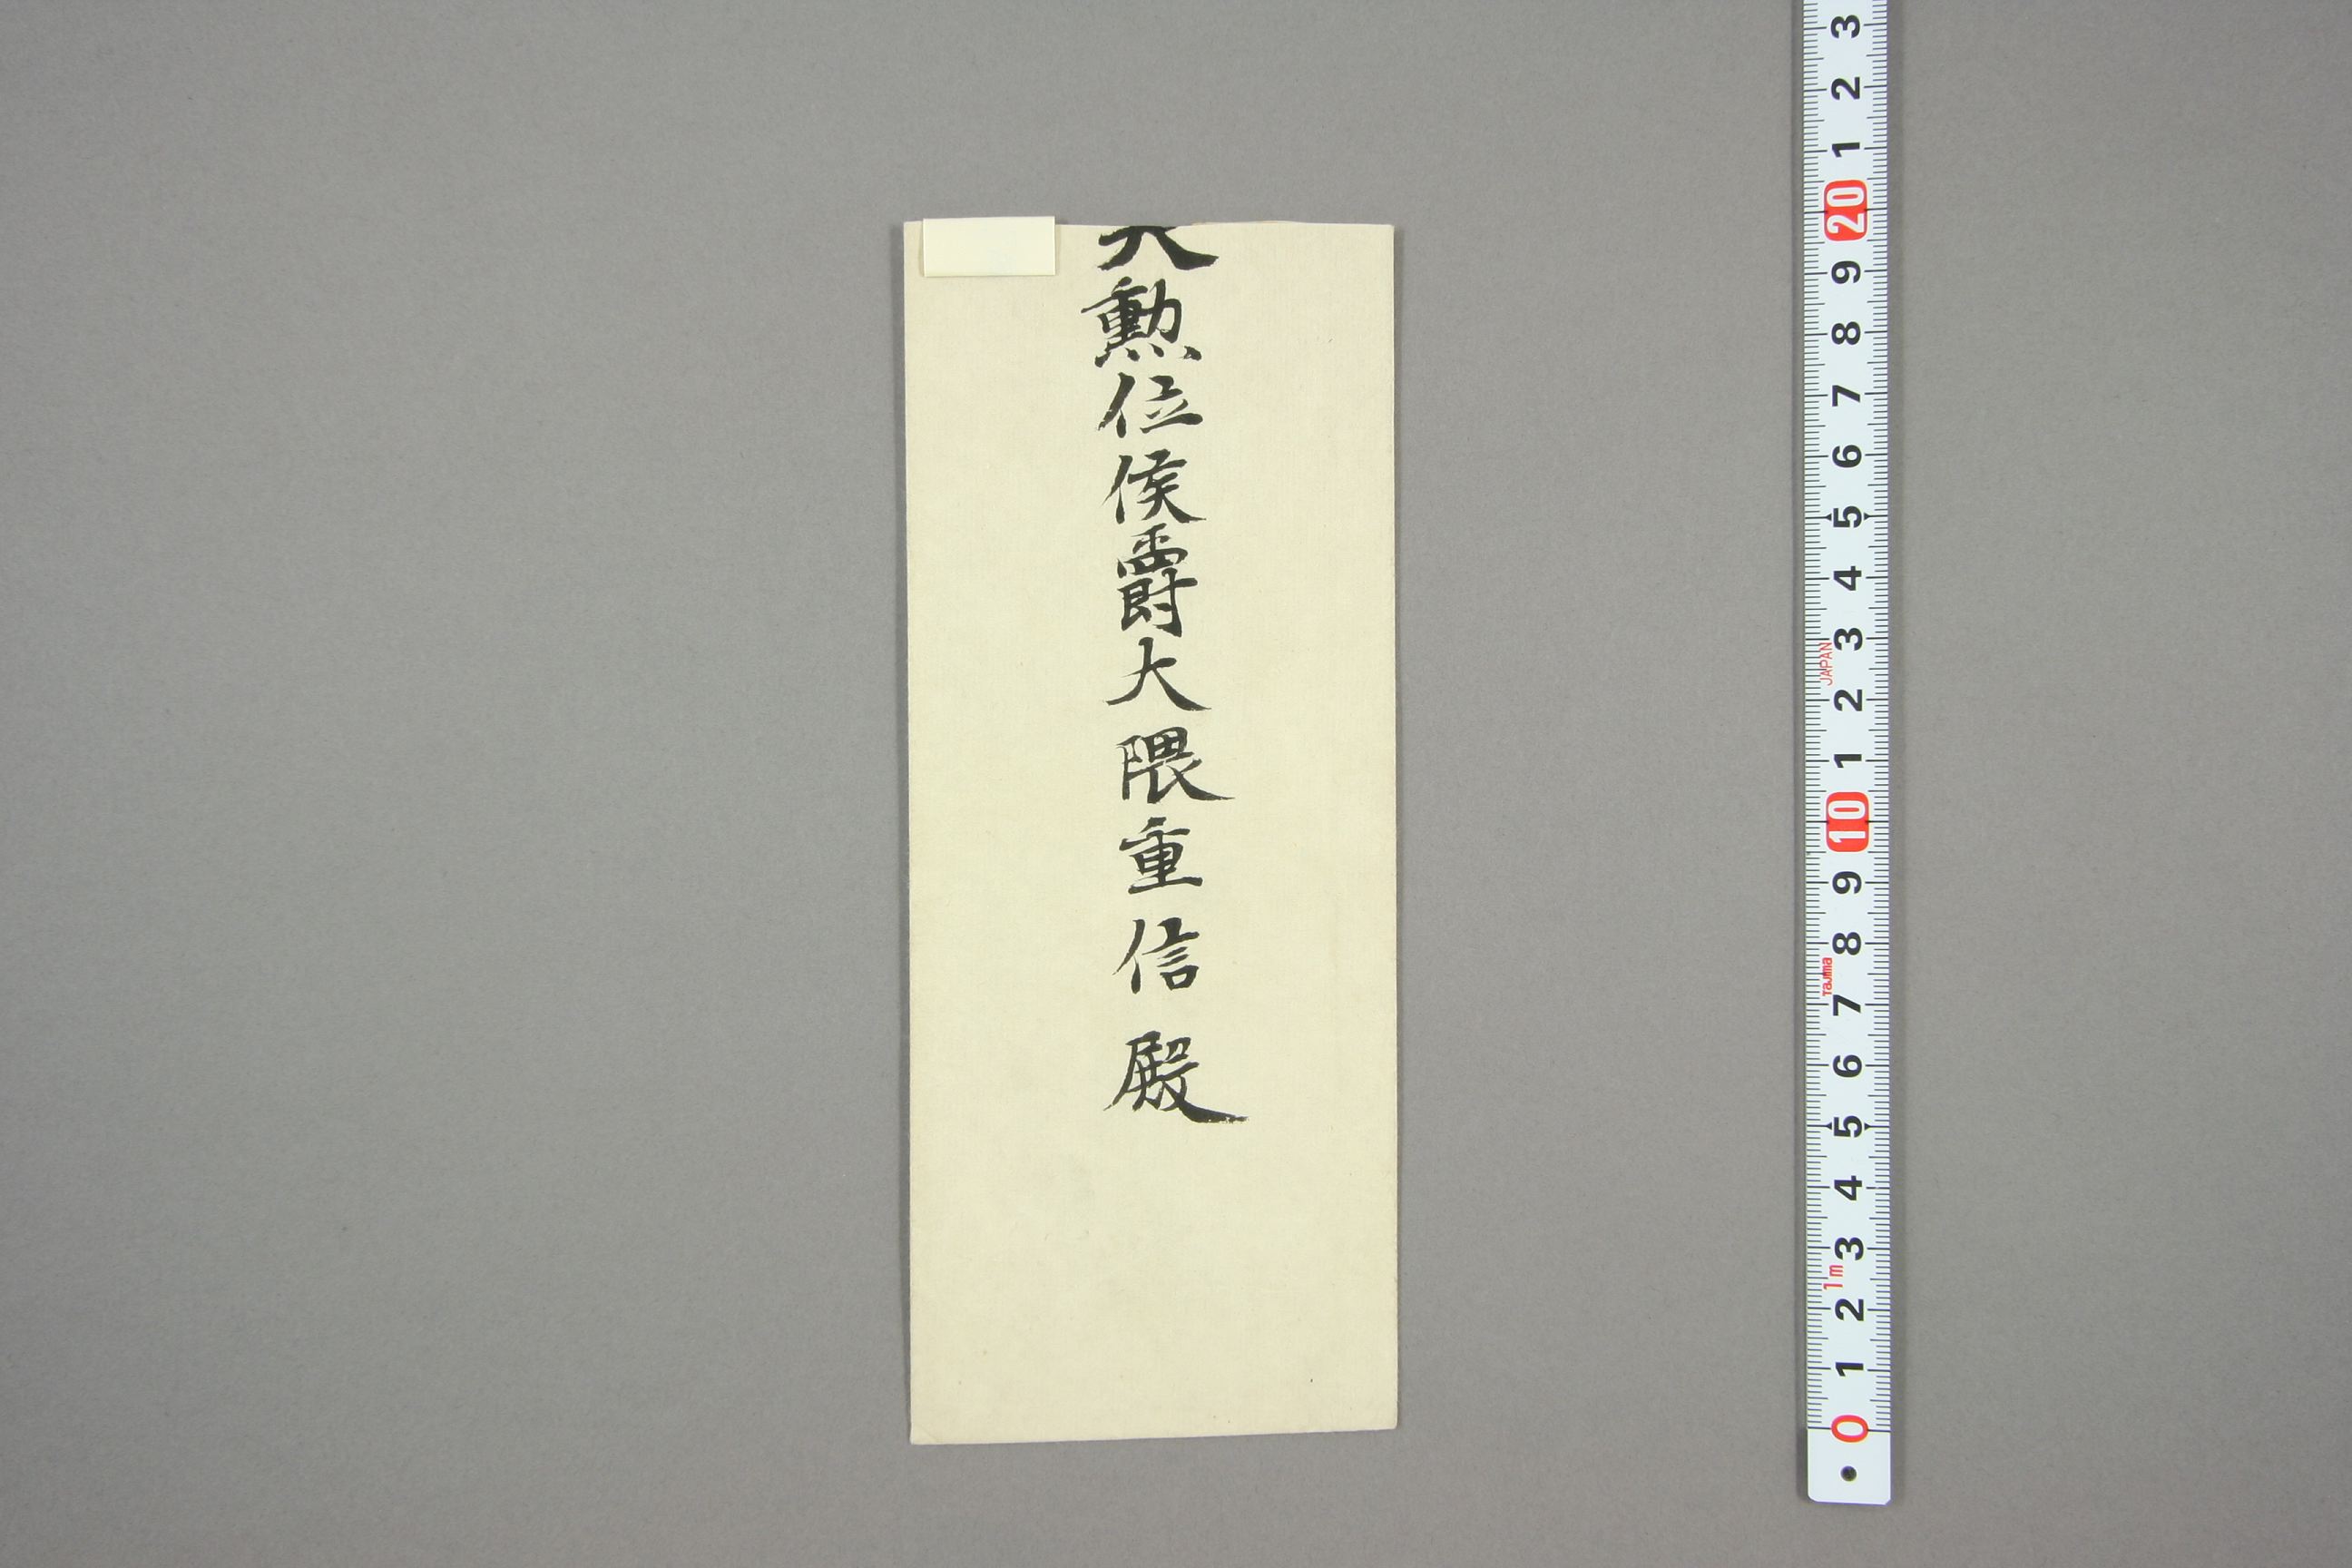 大勲位侯爵大隈重信殿
3
2
1
20
9
8
7
6
5
4
3
JAPAN
2
1
10
9
8
Tajima
7
6
5
4
3
1m
2
1
0